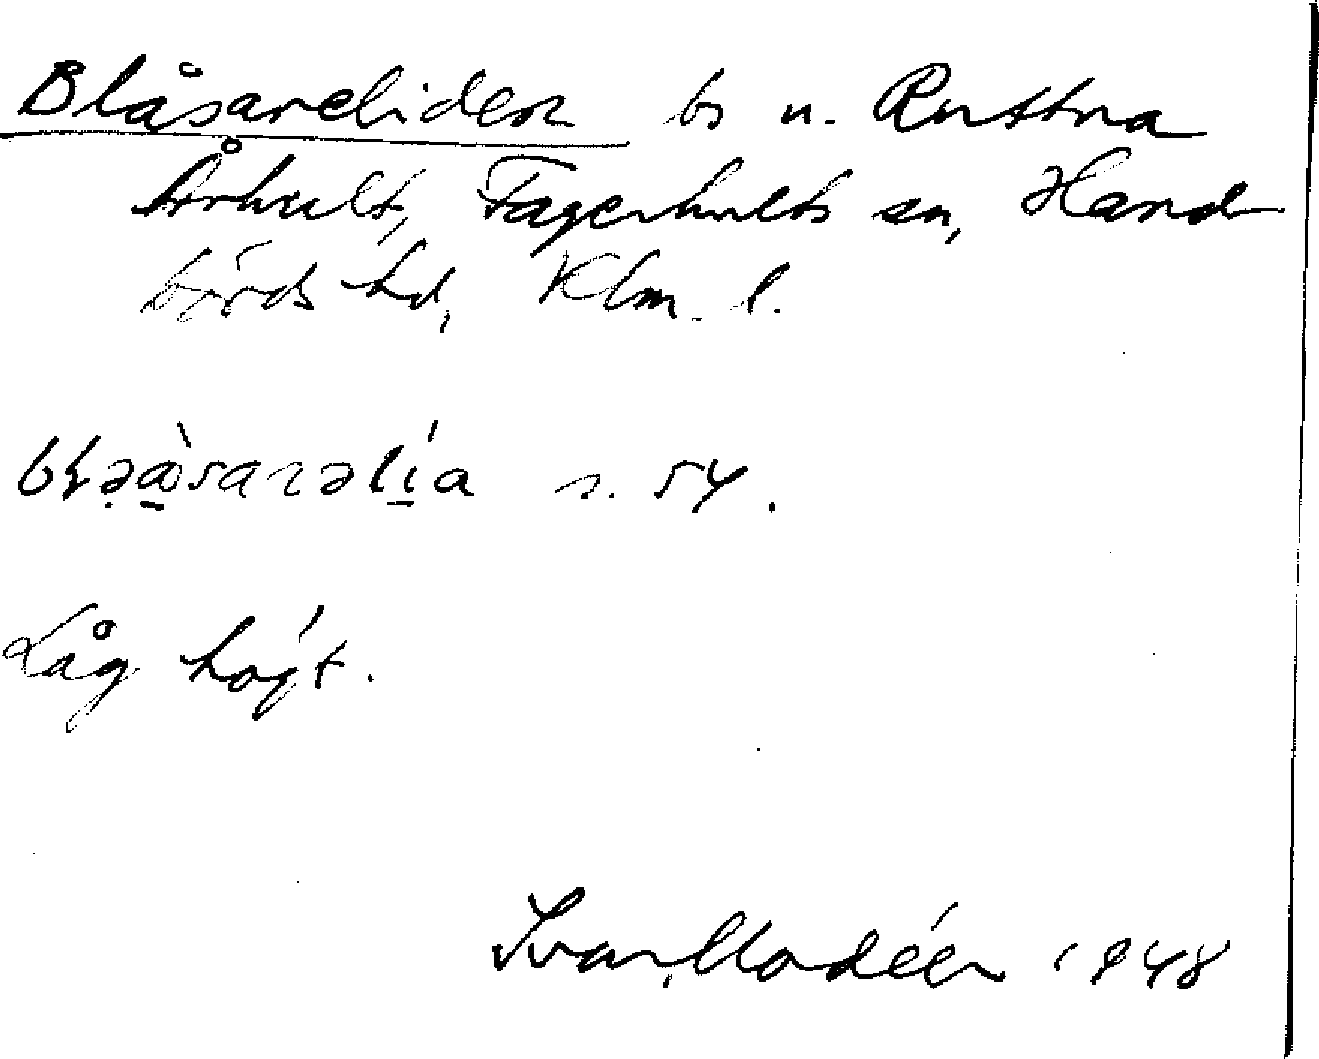 Blåsareliden bs u. Ruttna
Århult, Fagerhults sn, Hand
börds hd, Klm. l.
s. 54.
Låg högt.
Ivar Modéer 1948